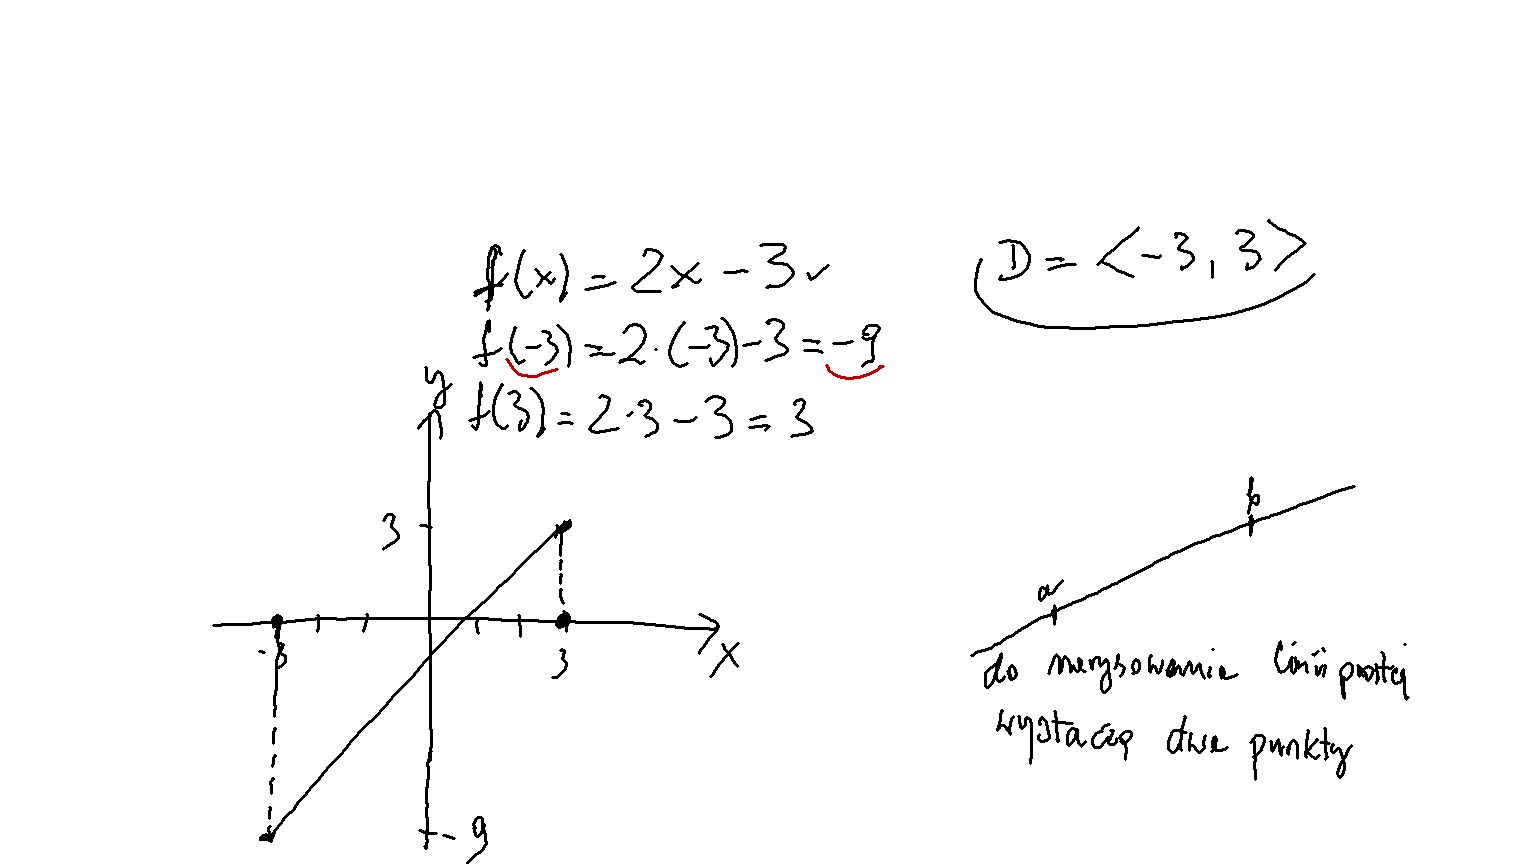 f(x) = 2x - 3
D = <-3, 3>
f(-3) = 2·(-3)-3 = -9
f(3) = 2·3 - 3 = 3
y
3
-3
3
x
-9
b
a
do narysowania linii prostej
wystarczą dwa punkty